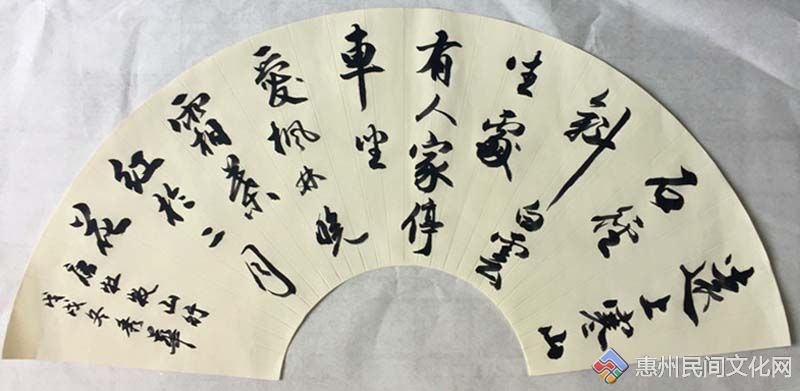 遠上寒山
石徑
斜白雲
生處
有人家停
車坐
愛楓林晚
霜葉
紅於二月
花
唐杜牧山行
戊戌冬秀華
惠州民间文化网